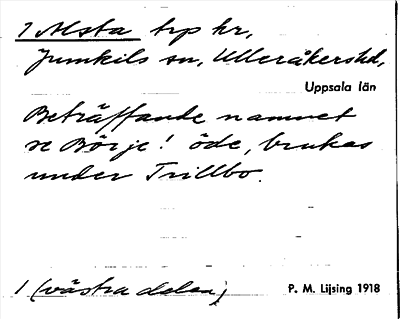 ? Alsta trp kr,
Jumkils sn, Ulleråkers hd,
Uppsala län
Beträffande namnet
se Börje! öde, brukas
under Trillbo.
1 (västra delen)
P. M. Lijsing 1918